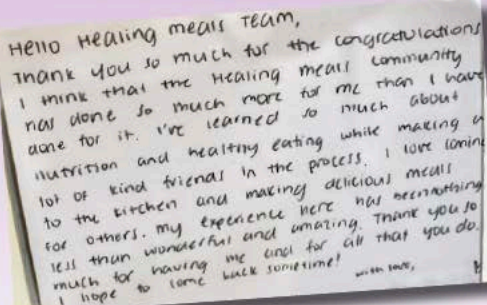 Hello Healing Meals Team,
Thank you so much for the congratulations
I think that the Healing Meals community
has done so much more for me than I have
done for it. I've learned so much about
nutrition and healthy eating while making a
lot of kind friends in the process. I love coming
to the kitchen and making delicious meals
for others. My experience here has been nothing
less than wonderful and amazing. Thank you so
much for having me and for all that you do.
I hope to come back sometime!
with love,